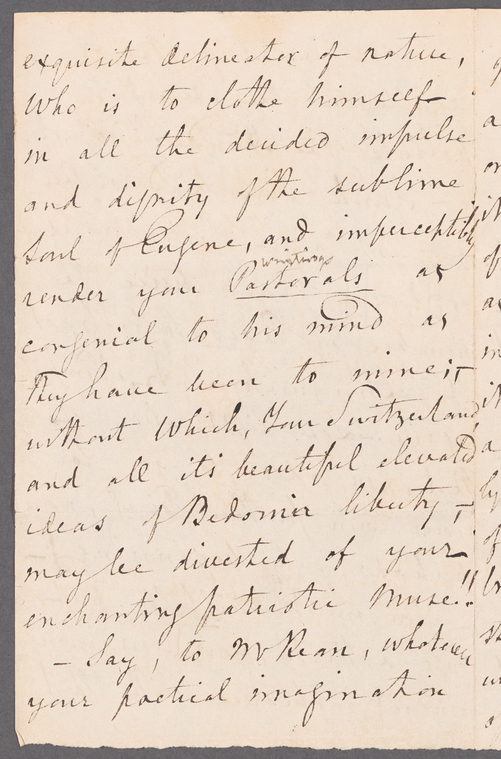 exquisite delineator of nature,
Who is to clothe himself
in all the decided impulse
and dignity of the sublime
Soul of Eugene, and imperceptibly
writings
render your Pastorals as
congenial to his mind as
They have been to mine;—
without Which, Your Switzerland,
and all its beautiful elevated
ideas of liberty,—
may be divested of your
enchanting patriotic Muse!!
— Say, to Mr Kean, whatever
your poetical imagination